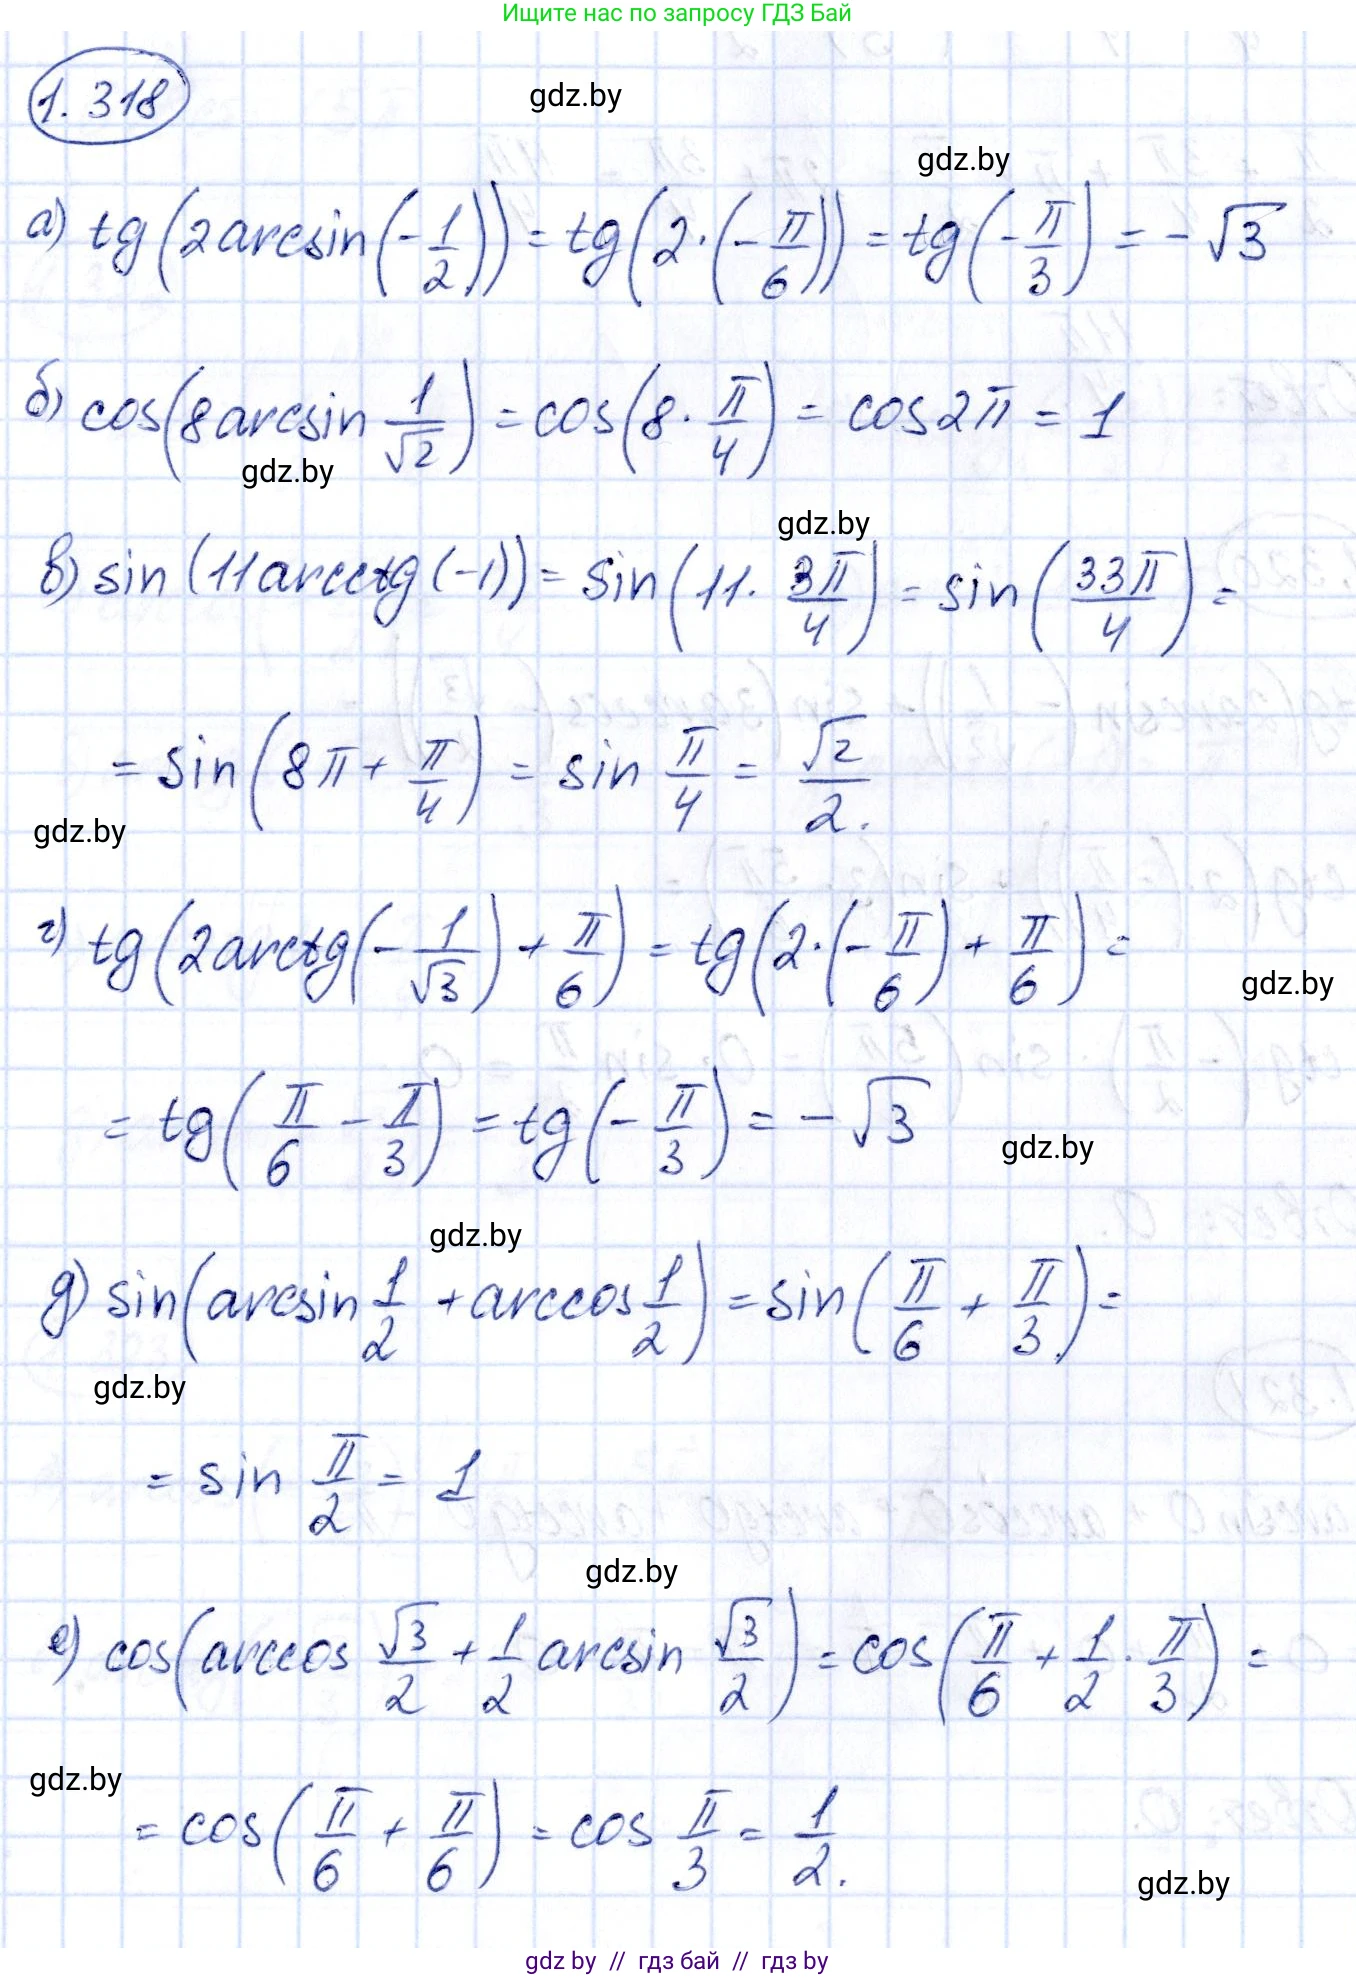 Ищите нас по запросу ГДЗ Бай
1.318
gdz.by
gdz.by
а) tg(2arcsin(-1/2)) = tg(2·(-π/6)) = tg(-π/3) = -√3
б) cos(8arcsin 1/√2) = cos(8·π/4) = cos2π = 1
gdz.by
gdz.by
в) sin(11arcctg(-1)) = sin(11·3π/4) = sin(33π/4) =
= sin(8π + π/4) = sin π/4 = √2/2.
gdz.by
г) tg(2arctg(-1/√3) + π/6) = tg(2·(-π/6) + π/6) =
gdz.by
= tg(π/6 - π/3) = tg(-π/3) = -√3
gdz.by
gdz.by
д) sin(arcsin 1/2 + arccos 1/2) = sin(π/6 + π/3) =
gdz.by
= sin π/2 = 1
gdz.by
е) cos(arccos √3/2 + 1/2 arcsin √3/2) = cos(π/6 + 1/2 · π/3) =
gdz.by
= cos(π/6 + π/6) = cos π/3 = 1/2.
gdz.by
gdz by // гдз бай // гдз by